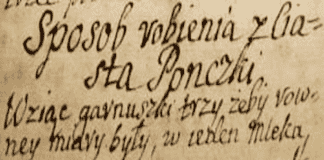 Sposob robienia z Cia=
sta Ponczki
Wziąc garnuszki trzy żeby row=
ney miary były, w ieden Mleka,